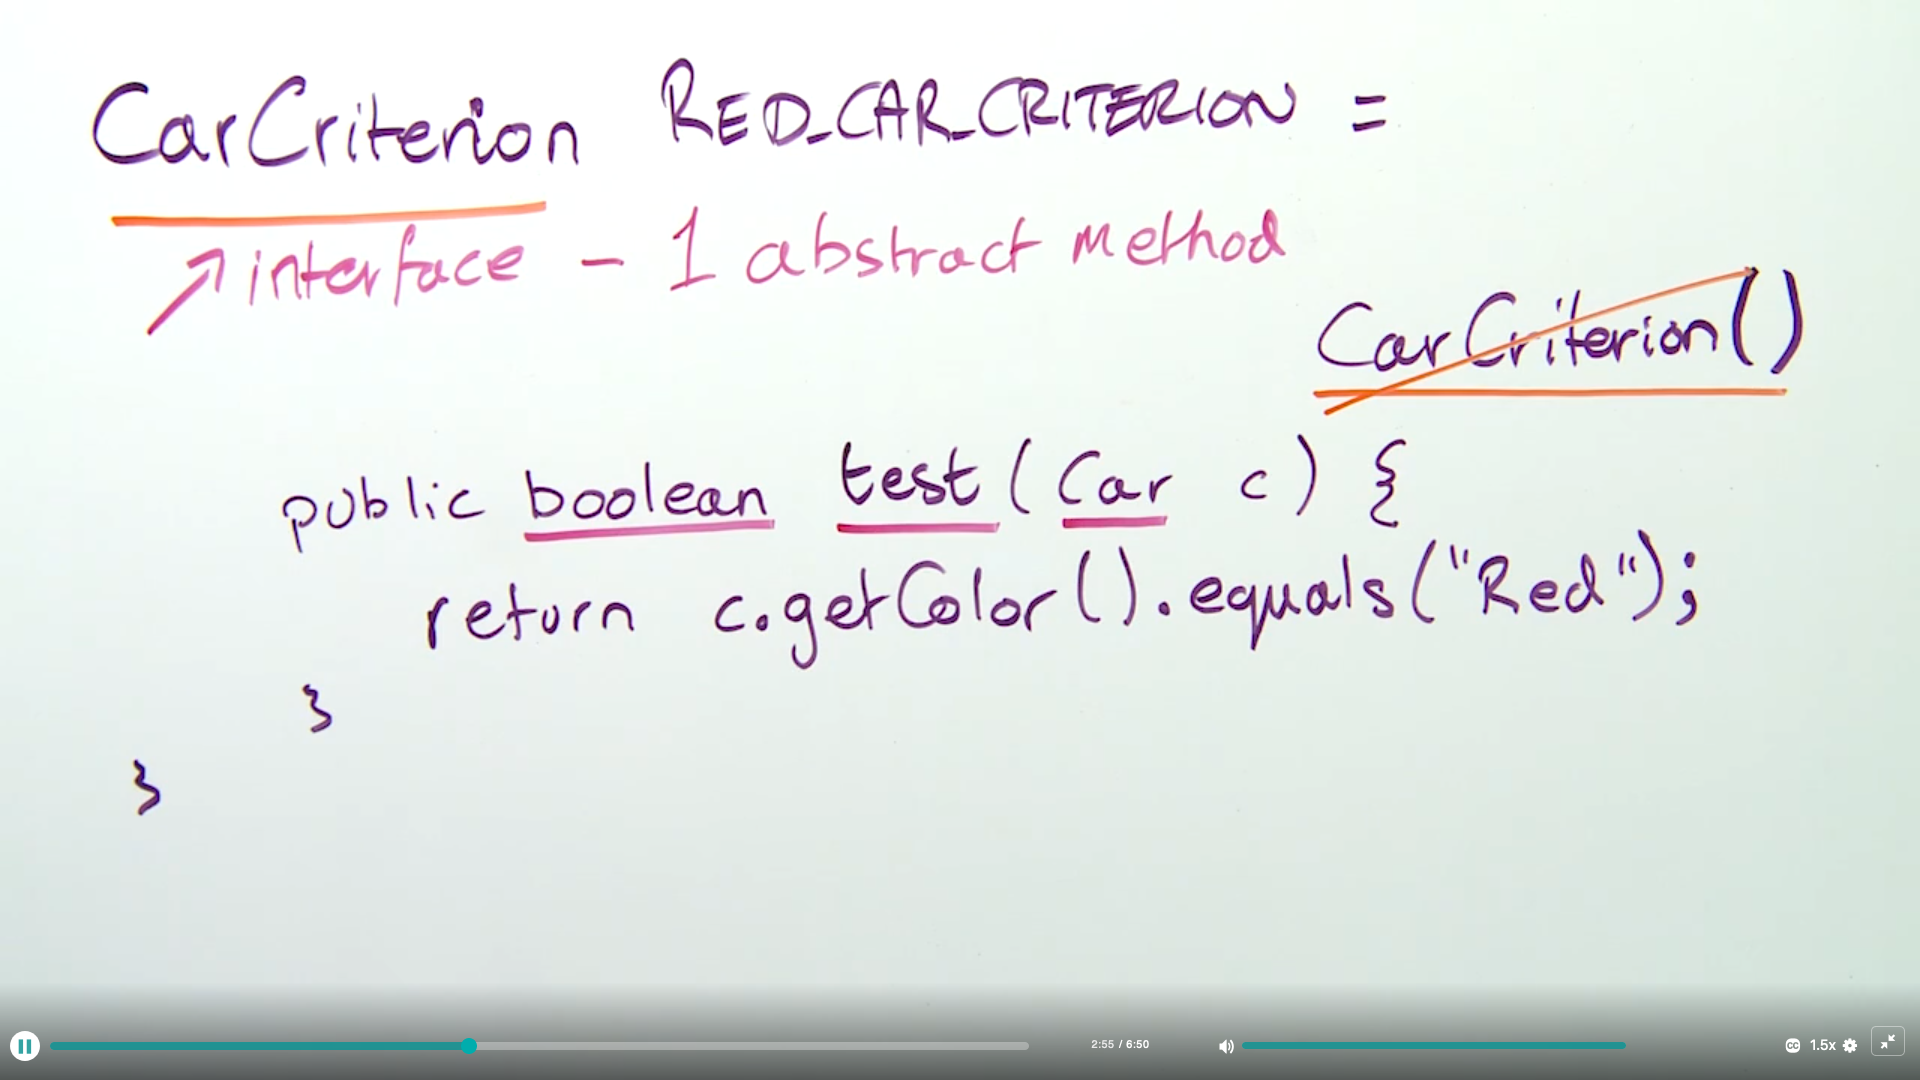 CarCriterion RED_CAR_CRITERION =
interface - 1 abstract method
CarCriterion()
public boolean test (Car c) {
return c.getColor().equals("Red");
}
}
2:55 / 6:50
CC 1.5x